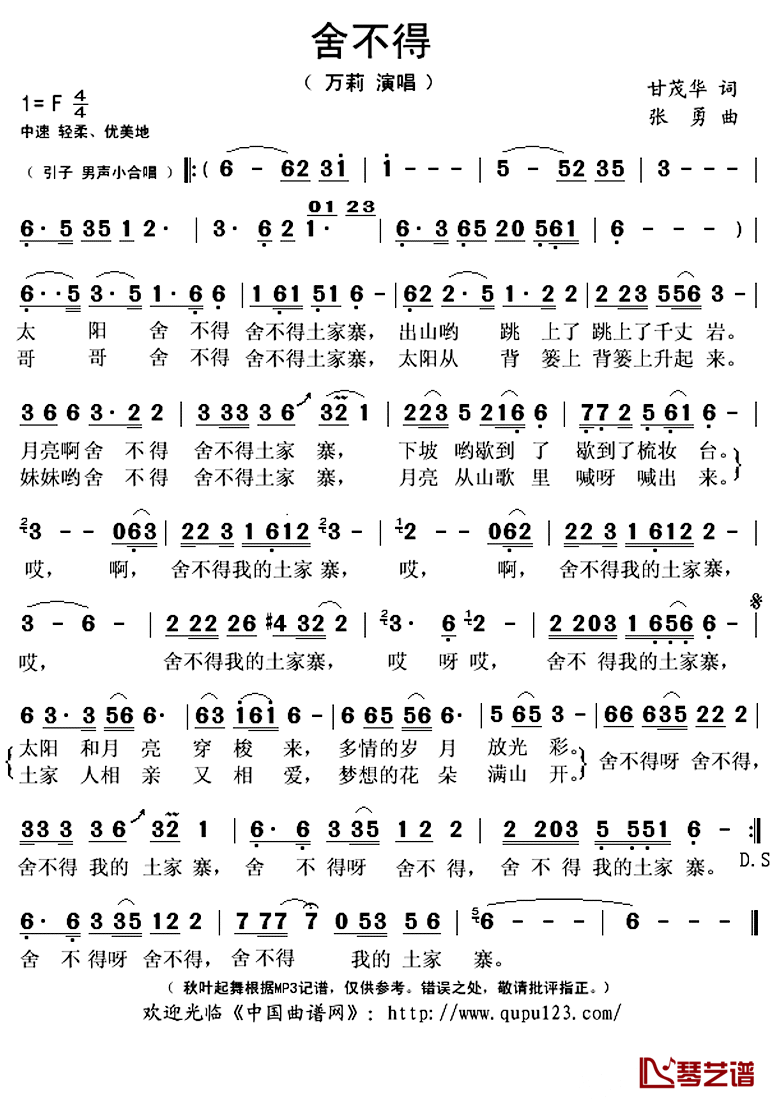 舍不得
（ 万莉 演唱 ）
1= F 4/4
甘茂华 词
中速 轻柔、优美地
张 勇 曲
（ 引子 男声小合唱 ）‖:( 6 - 62 31 | 1 - - - | 5 - 52 35 | 3 - - - |
01 23
6· 5 35 1 2· | 3· 6 2 1· | 6· 3 65 20 561 | 6 - - - )
6·· 5 3· 5 1· 6 6 | 1 61 51 6 - | 62 2· 5 1· 2 2 | 2 23 556 3 - |
太 阳 舍 不得 舍不得土家寨， 出山哟 跳 上了 跳上了千丈 岩。
哥 哥 舍 不得 舍不得土家寨， 太阳从 背 篓上 背篓上升起 来。
3 6 6 3· 2 2 | 3 33 3 6 32 1 | 223 5 216 6 | 77 2 5 61 6 - |
月亮啊舍 不得 舍不得土家 寨， 下坡 哟歇到 了 歇到了梳妆 台。
妹妹哟舍 不得 舍不得土家 寨， 月亮 从山歌 里 喊呀 喊出 来。
2 3 - - 063 | 22 3 1 612 2 3 - | 1 2 - - 062 | 22 3 1 612 2 - |
哎， 啊， 舍不得我的土家 寨， 哎， 啊， 舍不得我的土家寨，
3 - 6 - | 2 22 26 #4 32 2 | 2 3· 6 1 2 - | 2 203 1 656 6 - |
哎， 舍不得我的土家寨， 哎 呀 哎， 舍不 得我的土家寨，
6 3· 3 56 6· | 63 161 6 - | 6 65 65 56 6· | 5 65 3 - | 66 635 22 2 |
太阳 和月 亮 穿 梭 来， 多情的岁 月 放光 彩。
舍不得呀 舍不得，
土家 人相 亲 又 相 爱， 梦想的花 朵 满山 开。
33 3 3 6 32 1 | 6· 6 3 35 1 2 2 | 2 203 5 551 6 - :‖
舍不得 我的 土家 寨， 舍 不 得呀 舍不 得， 舍 不 得 我的土家 寨。 D.S
6· 6 3 35 12 2 | 7 77 7 0 53 5 6 | 5 6 - - - | 6 - - - ‖
舍 不 得呀 舍不得， 舍 不得 我的 土家 寨。
（ 秋叶起舞根据MP3记谱，仅供参考。错误之处，敬请批评指正。）
欢迎光临《中国曲谱网》：http://www.qupu123.com/
琴艺谱